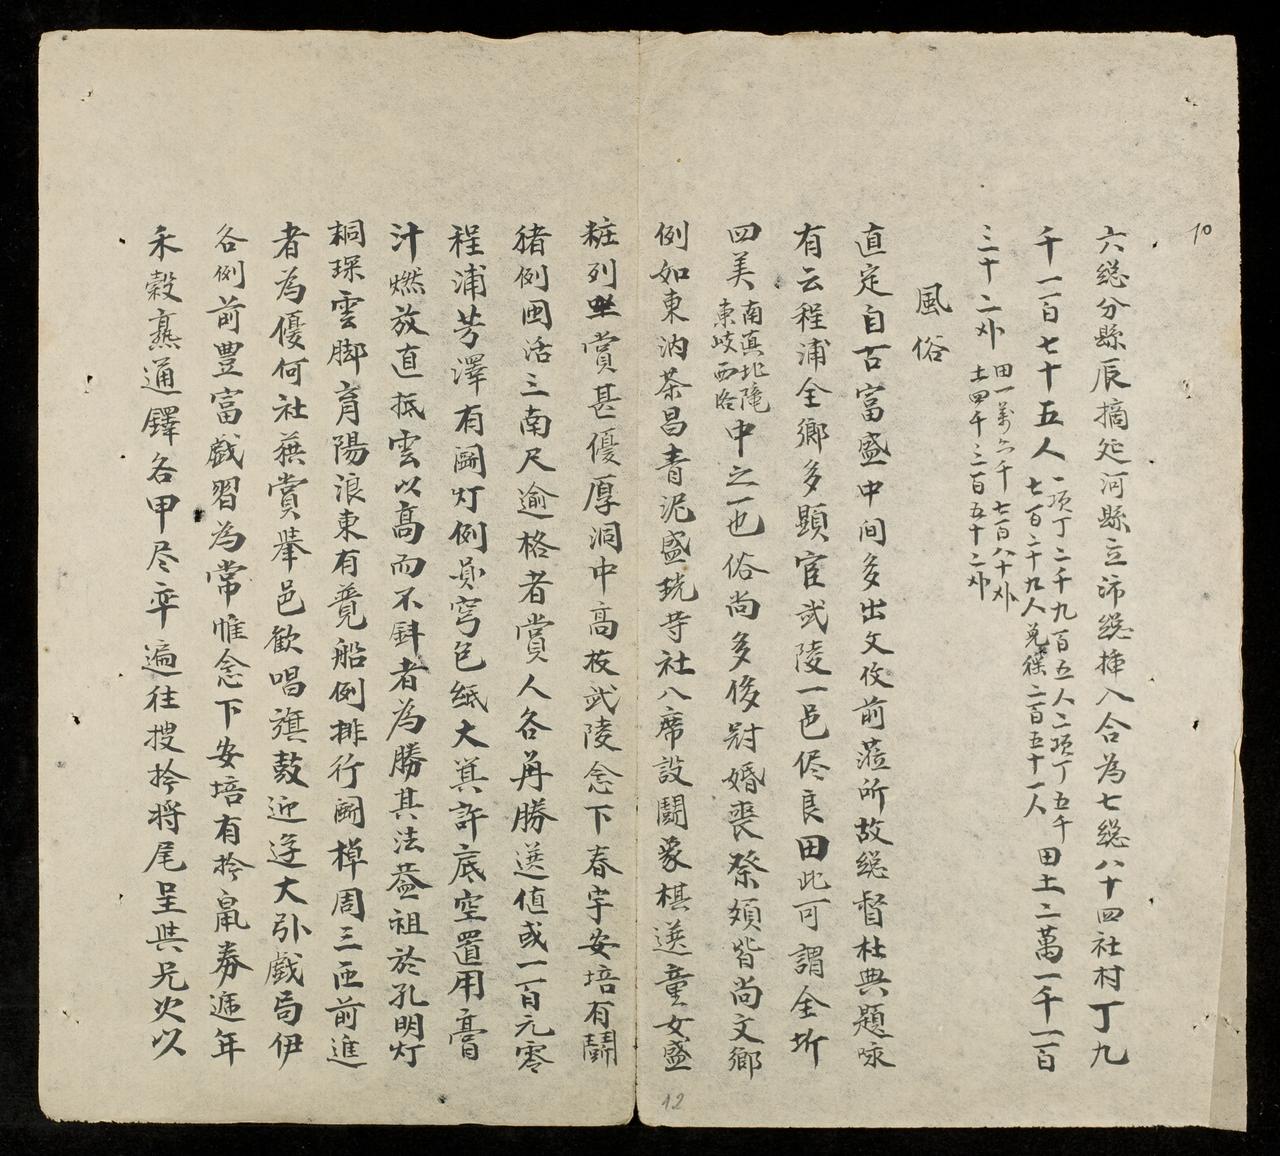 10
六総分縣辰摘延河縣立沛総揷入合為七総八十四社村丁九
千一百七十五人一項丁二千九百五人二項丁五千
七百二十九人免徭二百五十一人田土二萬一千一百
三十二㪷田一萬六千七百八十㪷
土四千三百五十二㪷
風俗
直定自古富盛中间多出文攸前蒞所故総督杜典題咏
有云程浦全鄉多顯宦武陵一邑侭良田此可謂全圻
四美南真北隆
東岐西路中之一也俗尚多侈冠婚喪祭頻皆尚文鄉
例如東汭茶昌青泥盛珖等社八席設鬪象棋選童女盛
粧列坐賞甚優厚洞中高枚武陵念下春宇安培有鬪
猪例囲活三南尺逾格者賞人各再勝選值或一百元零
程浦芳澤有鬪灯例員穹色紙大箕許底空置用膏
汁燃放直抵雲以高而不斜者為勝其法蓋祖於孔明灯
桐琛雲脚育陽浪東有競船例排行鬪棹周三匝前進
者為優何社蕪賞挙邑歓唱旗鼓迎迓大引戲局伊
各例前豐富戲習為常惟念下安培有拎鼠券遞年
禾穀熹通鐸各甲尽率遍往搜拎将尾呈與兄次以
12